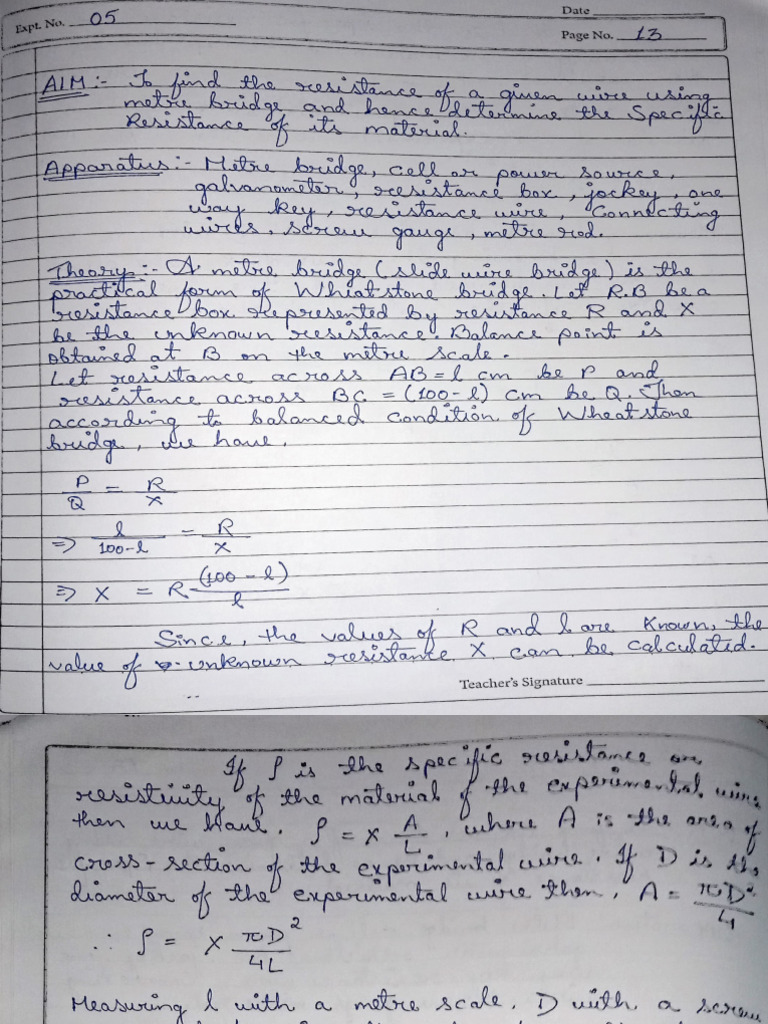 Expt. No. 05
Date
Page No. 13
AIM :- To find the resistance of a given wire using
metre bridge and hence determine the Specific
Resistance of its material.
Apparatus :- Metre bridge, cell or power source,
galvanometer, resistance box, jockey, one
way key, resistance wire, Connecting
wires, screw gauge, metre rod.
Theory :- A metre bridge (slide wire bridge) is the
practical form of Wheatstone bridge. Let R.B be a
resistance box represented by resistance R and X
be the unknown resistance. Balance point is
obtained at B on the metre scale.
Let resistance across AB = l cm be P and
resistance across BC = (100-l) cm be Q. Then
according to balanced condition of Wheatstone
bridge, we have,
P/Q = R/X
⇒ l/100-l = R/X
⇒ X = R (100-l)/l
Since, the values of R and l are known, the
value of unknown resistance X can be calculated.
Teacher's Signature
If ρ is the specific resistance or
resistivity of the material of the experimental wire,
then we have, ρ = X A/L, where A is the area of
cross-section of the experimental wire. If D is the
diameter of the experimental wire then, A = πD²/4
∴ ρ = X πD²/4L
Measuring l with a metre scale, D with a screw